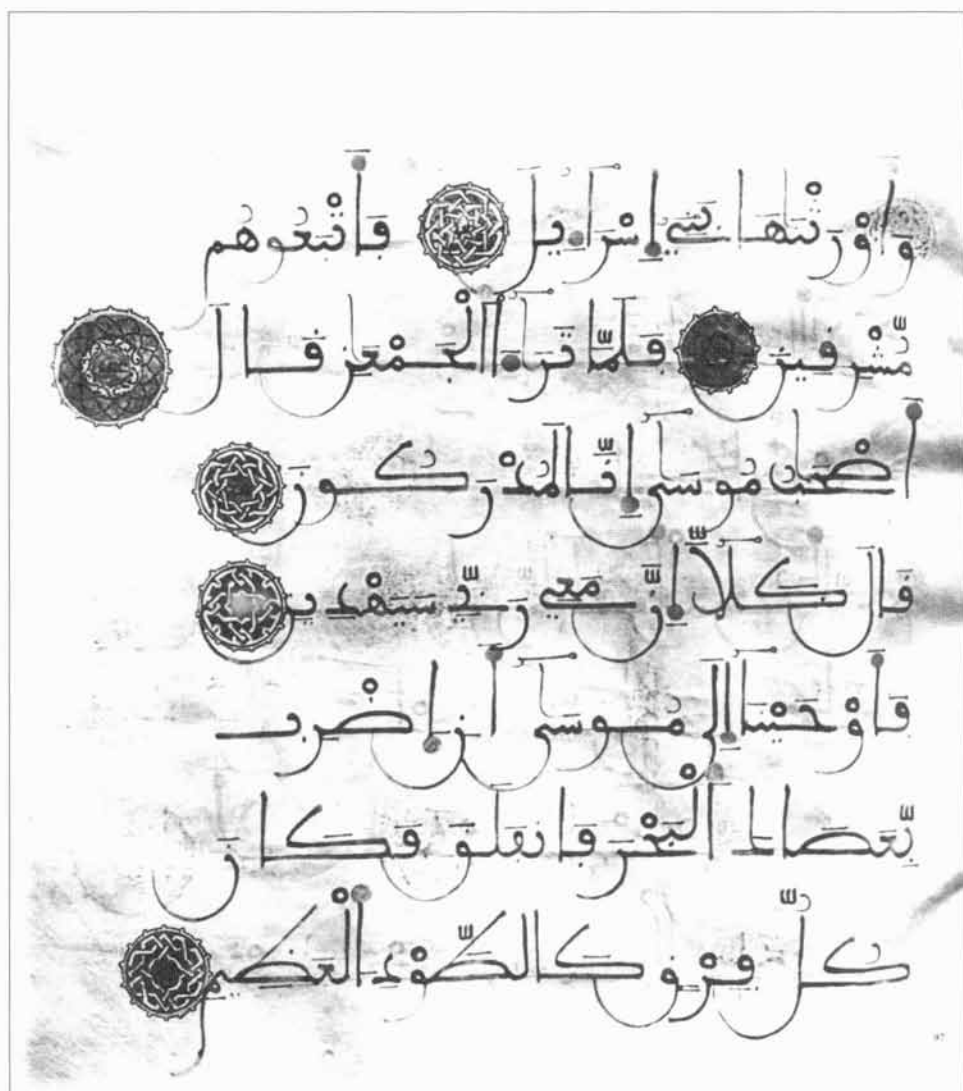 وَأَوْرَثْنَٰهَا بَنِىٓ إِسْرَآءِيلَ فَأَتْبَعُوهُم
مُّشْرِقِينَ فَلَمَّا تَرَٰٓءَا ٱلْجَمْعَٰنِ قَالَ
أَصْحَٰبُ مُوسَىٰٓ إِنَّا لَمُدْرَكُونَ
قَالَ كَلَّآ إِنَّ مَعِىَ رَبِّى سَيَهْدِينِ
فَأَوْحَيْنَآ إِلَىٰ مُوسَىٰٓ أَنِ ٱضْرِب
بِّعَصَاكَ ٱلْبَحْرَ فَٱنفَلَقَ فَكَانَ
كُلُّ فِرْقٍ كَٱلطَّوْدِ ٱلْعَظِيمِ
97